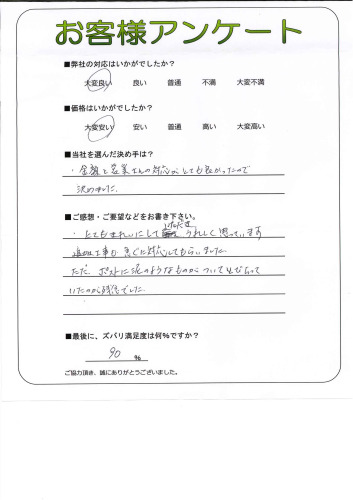 お客様アンケート
■弊社の対応はいかがでしたか？
大変良い 良い 普通 不満 大変不満
■価格はいかがでしたか？
大変安い 安い 普通 高い 大変高い
■当社を選んだ決め手は？
・金額と営業さんの対応がとても良かったので
決めました。
■ご感想・ご要望などをお書き下さい。
・とてもきれいにして いただき うれしく思っています
追加工事も急ぐに対応してもらいました
ただ ポストに泥のようなものがついて
いたのが残念でした
■最後に、ズバリ満足度は何％ですか？
90 ％
ご協力頂き、誠にありがとうございました。